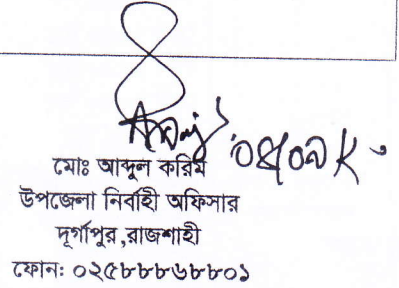 মোঃ আব্দুল করিম
উপজেলা নির্বাহী অফিসার
দূর্গাপুর,রাজশাহী
ফোন: ০২৫৮৮৮৬৮৮০১